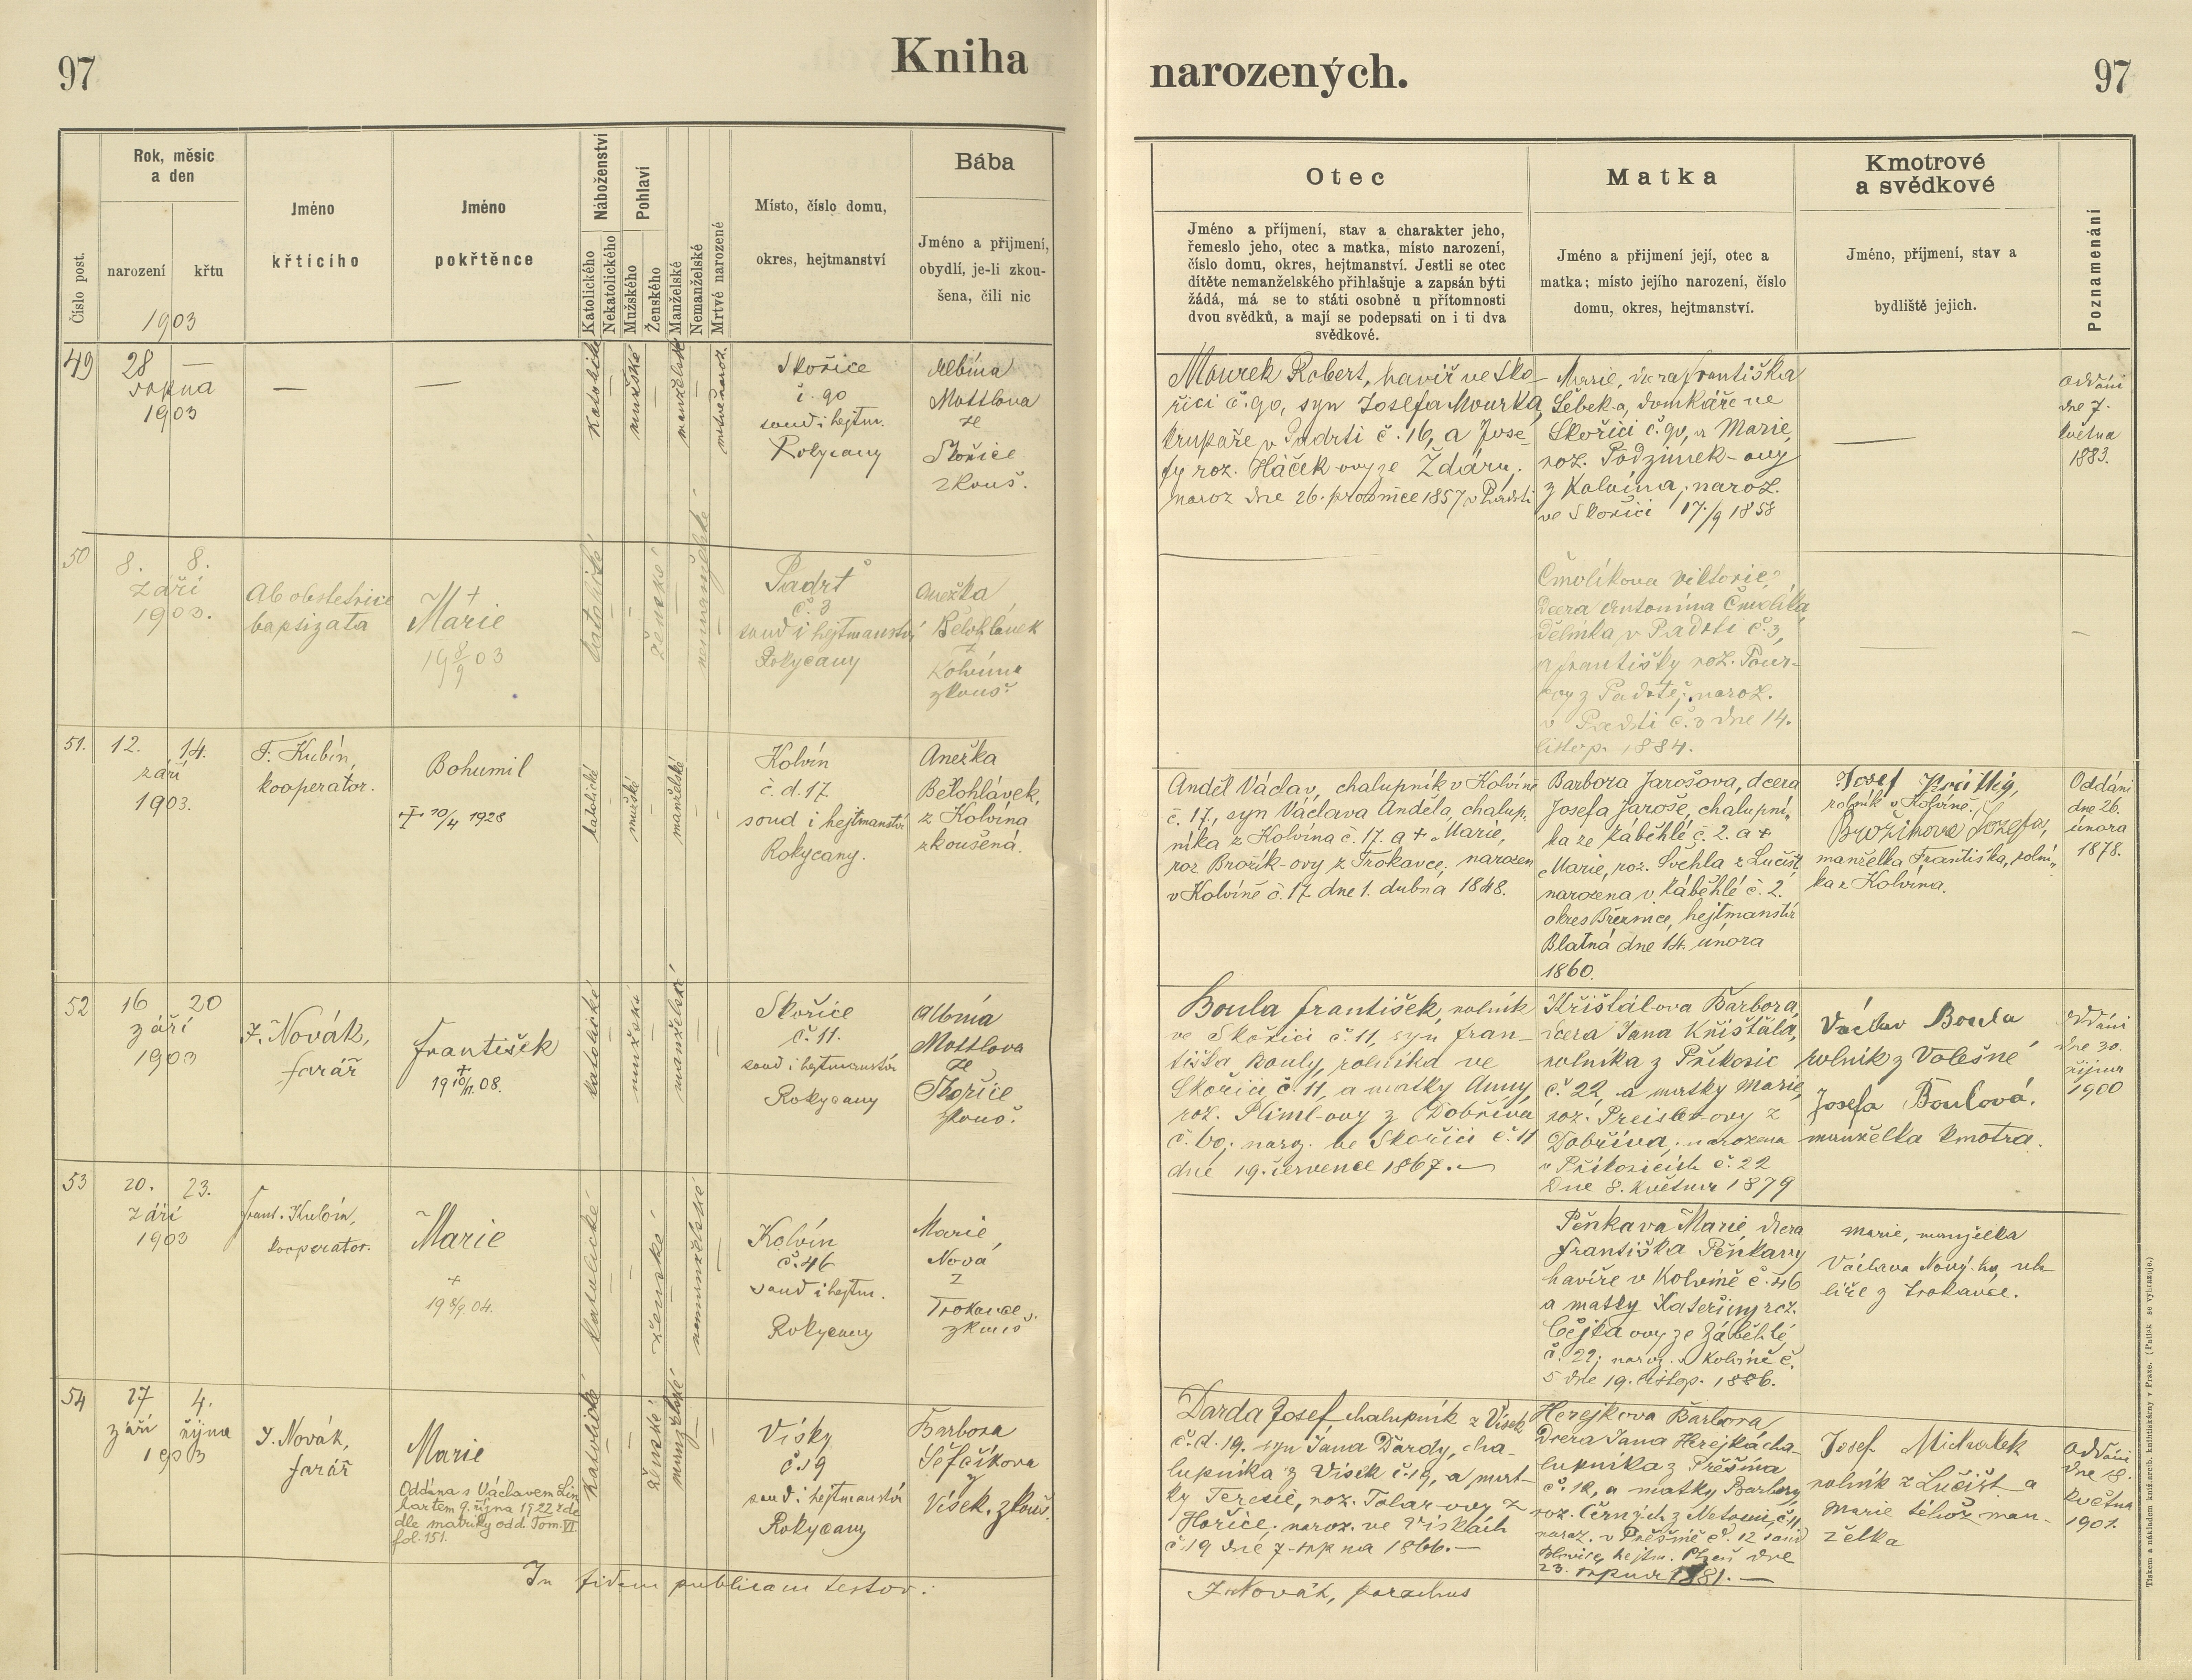 97
Kniha
narozených.
97
Číslo post.
Rok, měsíc
a den
narození
křtu
1903
Jméno
křticího
Jméno
pokřtěnce
Náboženství
Katolického
Nekatolického
Pohlaví
Mužského
Ženského
Manželské
Nemanželské
Mrtvé narozené
Místo, číslo domu,
okres, hejtmanství
Bába
Jméno a přijmení,
obydlí, je-li zkou-
šena, čili nic
Otec
Jméno a příjmení, stav a charakter jeho,
řemeslo jeho, otec a matka, místo narození,
číslo domu, okres, hejtmanství. Jestli se otec
dítěte nemanželského přihlašuje a zapsán býti
žádá, má se to státi osobně u přítomnosti
dvou svědků, a mají se podepsati on i ti dva
svědkové.
Matka
Jméno a přijmení její, otec a
matka; místo jejího narození, číslo
domu, okres, hejtmanství.
Kmotrové
a svědkové
Jméno, příjmení, stav a
bydliště jejich.
Poznamenání
49
28 —
srpna
1903
—
—
katolické
mužské
manželské
mrtvě naroz.
Skořice
č. 90
soud i hejtm.
Rokycany
Albína
Mottlova
ze
Skořice
zkouš.
Mourek Robert, havíř ve Sko-
řici č. 90, syn Josefa Mourka,
krupaře v Padrti č. 16, a Jose-
fy roz. Háček-ovy ze Ždáru,
naroz dne 26. prosince 1857 v Padrti
Marie, dcera Františka
Šebek-a, domkáře ve
Skořici č. 90, a Marie,
roz. Podzimek-ovy
z Kolvína, naroz.
ve Skořici 17./9 1858
—
oddáni
dne 7.
května
1883.
50
8. 8.
září
1903.
Ab obstetrice
baptizata
+
Marie
19 8/9 03
katolické
ženské
nemanželské
Padrť
č. 3
soud i hejtmanství
Rokycany
Anežka
Bělohlávek
z
Kolvína
zkouš.
Čmolíkova Viktorie,
dcera Antonína Čmolíka,
dělníka v Padrti č. 3,
a Františky roz. Pour-
ovy z Padrtě; naroz.
v Padrti č. 3 dne 14.
listop. 1884.
—
—
51.
12. 14.
září
1903.
F. Kubín,
kooperator.
Bohumil
+ 20/4 1928
katolické
mužské
manželské
Kolvín
č. d. 17
soud i hejtmanství
Rokycany.
Anežka
Bělohlávek,
z Kolvína
zkoušená.
Anděl Václav, chalupník v Kolvíně
č. 17., syn Václava Anděla, chalup-
níka z Kolvína č. 17. a + Marie,
roz Brožík-ovy z Trokavce, narozen
v Kolvíně č. 17 dne 1. dubna 1848.
Barbora Jarošova, dcera
Josefa Jaroše, chalupní-
ka ze Záběhlé č. 2. a +
Marie, roz. Švehla z Lučišť,
narozena v Záběhlé č. 2.
okres Březnice, hejtmanství
Blatná dne 14. února
1860.
Josef
rolník v Kolvíně.
Brožíkova Josefa,
manželka Františka, rolní-
ka z Kolvína.
Oddáni
dne 26.
února
1878.
52
16 20
září
1903
J. Novák,
farář
František
+
19 10/11. 08.
katolické
mužské
manželské
Skořice
č. 11.
soud i hejtmanství
Rokycany
Albína
Mottlova
ze
Skořice
zkouš.
Boula František, rolník
ve Skořici č. 11, syn Fran-
tiška Bouly, rolníka ve
Skořici č. 11, a matky Anny,
roz. Niml-ovy z Dobříva
č. 60; naroz. ve Skořici č. 11
dne 19. července 1867. —
Křišťálova Barbora,
dcera Jana Křišťála,
rolníka z Příkosic
č. 22, a matky Marie,
roz. Preisler-ovy z
Dobříva; narozena
v Příkosicích č. 22
dne 8. května 1879
Václav Boula
rolník z Volešné
Josefa Boulová,
manželka kmotra.
oddáni
dne 30.
října
1900
53
20. 23.
září
1903
Frant. Kubín,
kooperator.
Marie
+
19 8/9. 04.
katolické
ženské
nemanželské
Kolvín
č. 46
soud i hejtm.
Rokycany
Marie,
Nová
z
Trokavce,
zkouš.
Pěnkava Marie, dcera
Františka Pěnkavy
havíře v Kolvíně č. 46
a matky Kateřiny roz.
Čejka ovy ze Záběhlé
č. 22; naroz. v Kolvíně č.
5 dne 19. listop. 1886.
Marie, manželka
Václava Nový-ho, uh-
líře z Trokavce.
54
27 4.
září října
1903
J. Novák,
farář
Marie
Oddána s Václavem Lin-
hartem 9. října 1922 zde
dle matriky odd. Tom. VI.
fol. 151.
katolické
ženské
manželské
Vísky
č. 19
soud i hejtmanství
Rokycany
Barbora
Šefčíkova
z
Vísek. zkouš.
Darda Josef chalupník z Vísek
č. d. 19. syn Jana Dardy, cha-
lupníka z Vísek č. 19, a mat-
ky Terezie, roz. Tolar-ovy z
Hořic; naroz. ve Vískách
č. 19 dne 7. srpna 1866. —
Herejkova Barbora
dcera Jana Herejka cha-
lupníka z Přešína
č. 12, a matky Barbory
roz. Černých z Netonic č. 11
naroz. v Přešíně č. 12 soud
Blovice, hejtm. Plzeň dne
23. srpna 1881. —
Josef Michálek
rolník z Lučišť a
Marie téhož man-
želka
oddáni
dne 18.
května
1901.
In fidem publicam testor:
J. Novák, parochus
Tiskem a nákladem kníž. arcib. knihtiskárny v Praze. (Patisk se vyhrazuje.)